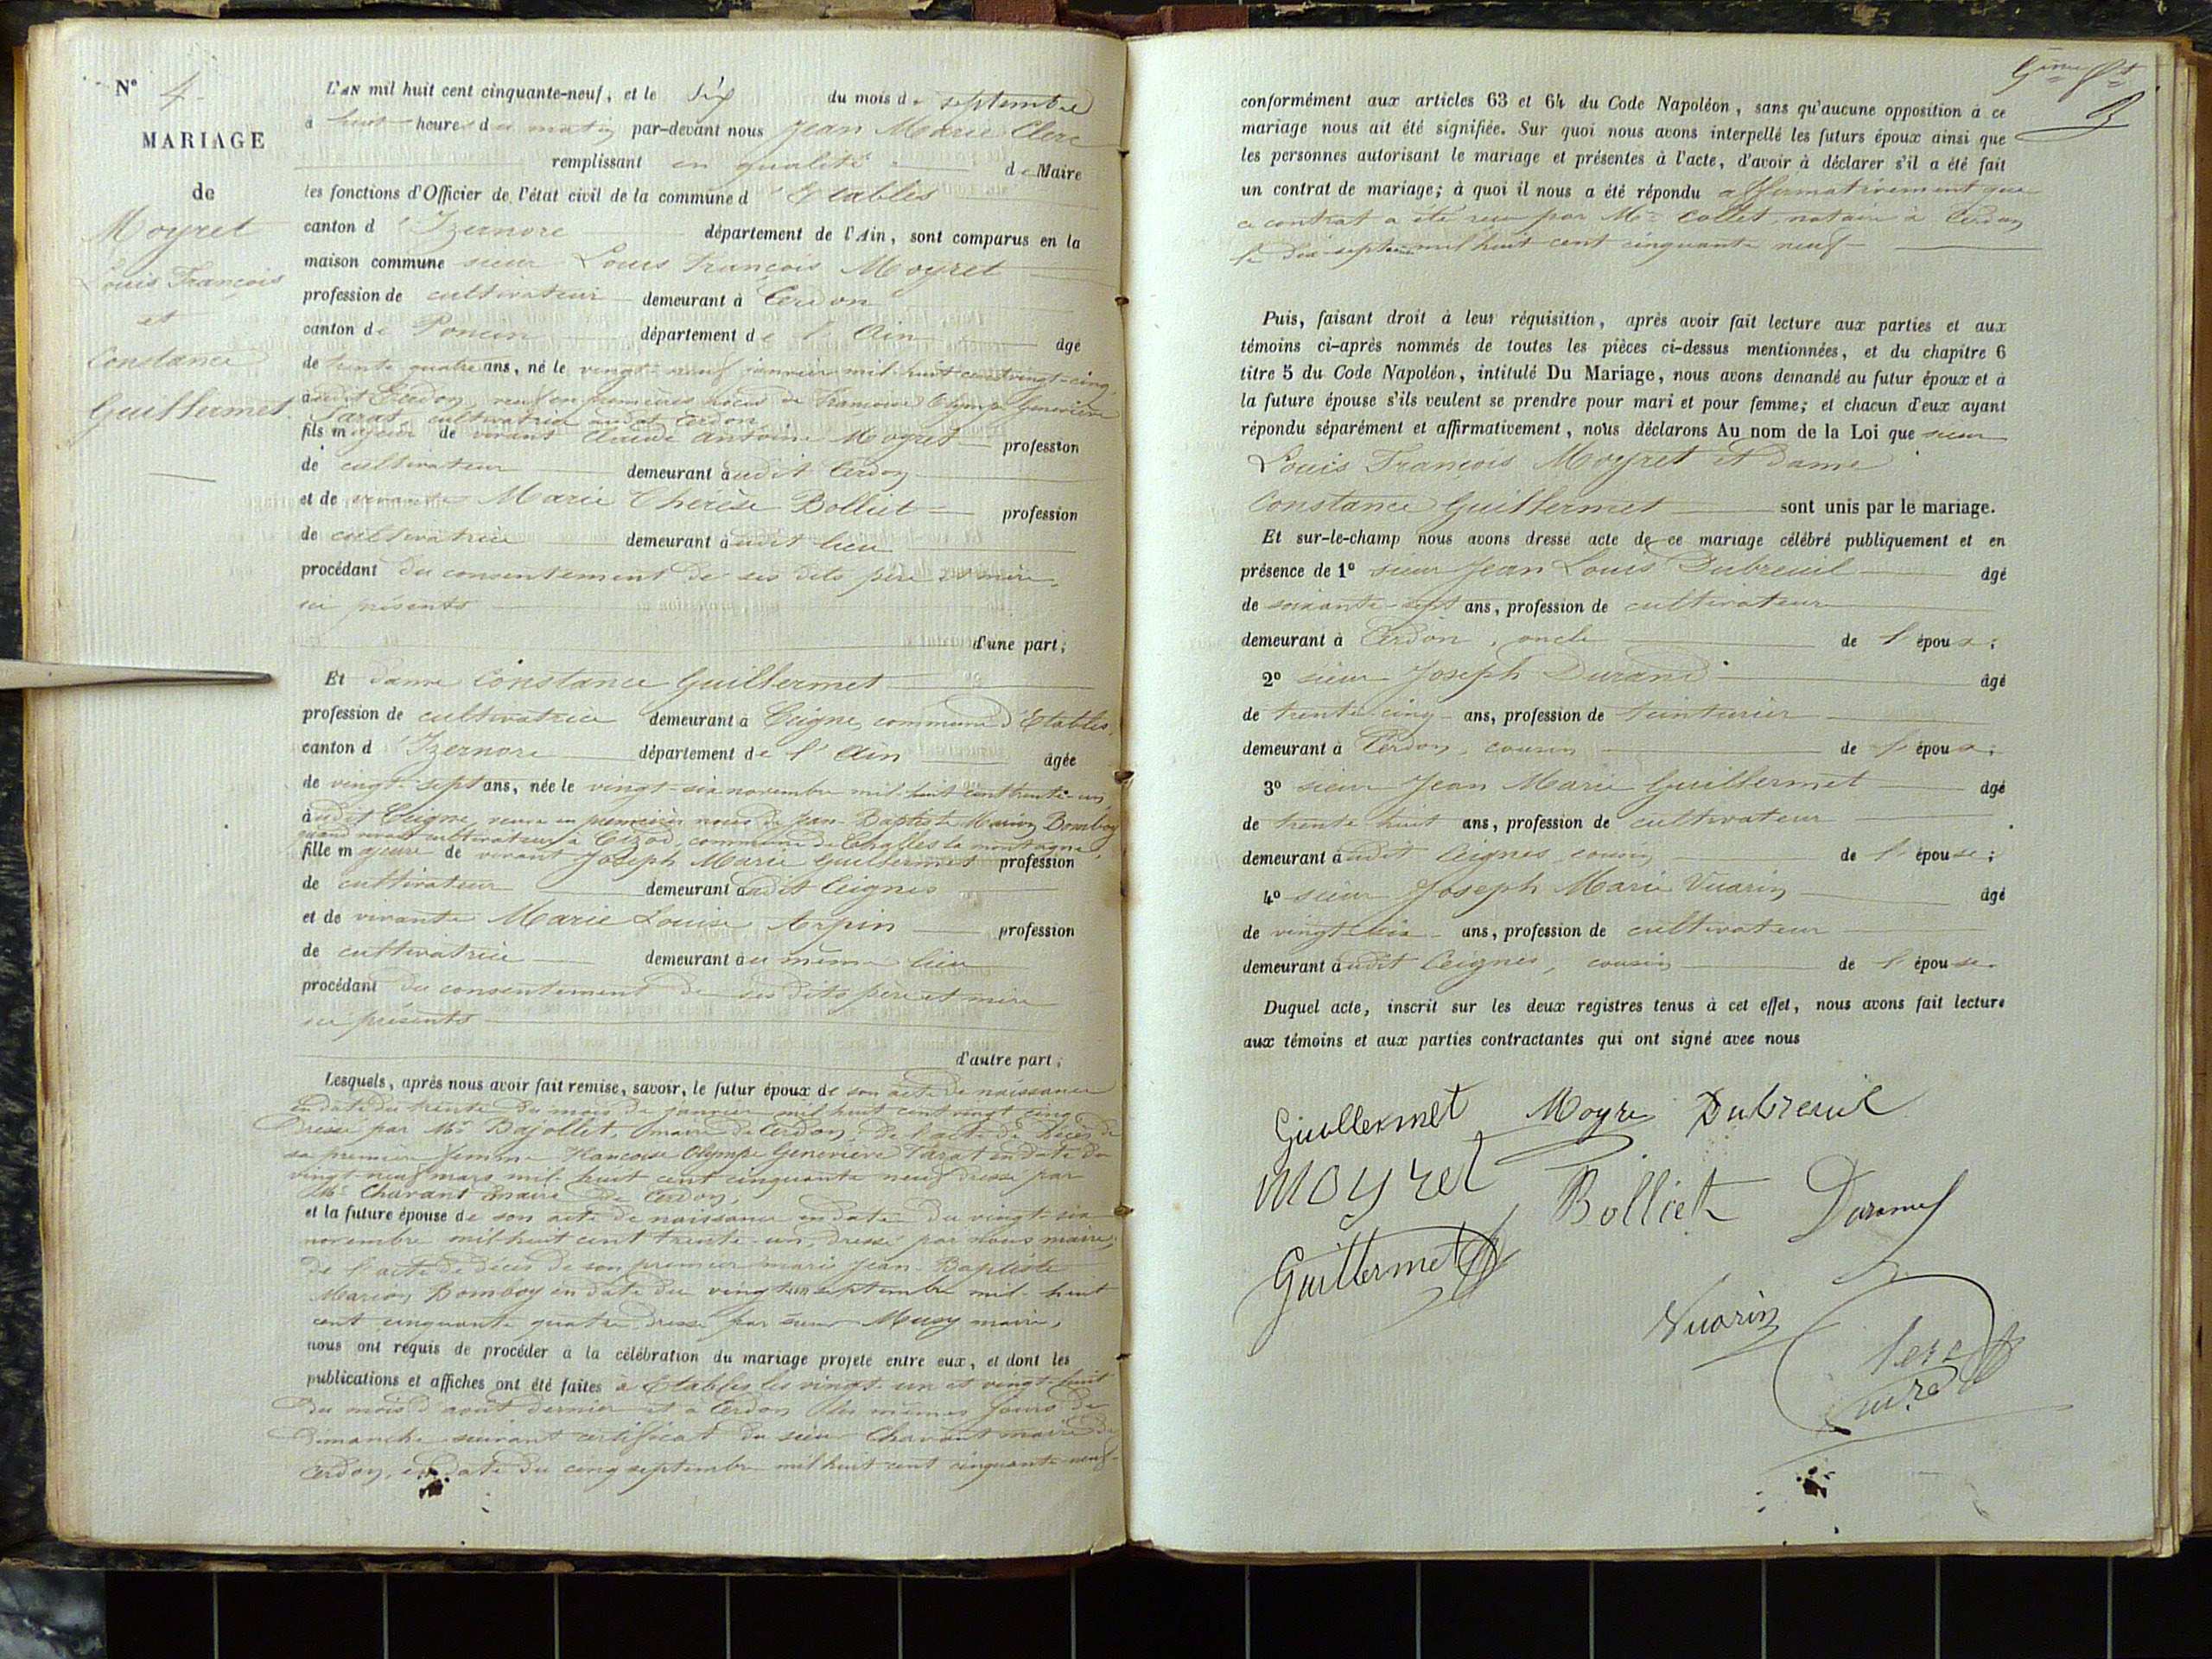 N° 4
MARIAGE
de
Moyret
Louis François
et
Constance
Guillermet
L'AN mil huit cent cinquante-neuf, et le six du mois de septembre
à huit heures du matin par-devant nous Jean Marie Clerc
remplissant en qualité de Maire
les fonctions d'Officier de l'état civil de la commune d'Etables
canton d'Izernore département de l'Ain, sont comparus en la
maison commune sieur Louis François Moyret
profession de cultivateur demeurant à Cerdon
canton de Poncin département de l'Ain âgé
de trente quatre ans, né le vingt-neuf janvier mil huit cent vingt-cinq
audit Cerdon, veuf en premières noces de Françoise Olympe Geneviève
Tarat, cultivatrice audit Cerdon
fils majeur de vivant Claude Antoine Moyret profession
de cultivateur demeurant audit Cerdon
et de vivante Marie Thérèse Bolliet profession
de cultivatrice demeurant audit lieu
procédant du consentement de ses dits père et mère,
ici présents
d'une part;
Et dame Constance Guillermet
profession de cultivatrice demeurant à Ceigne, commune d'Etables,
canton d'Izernore département de l'Ain âgée
de vingt-sept ans, née le vingt-six novembre mil-huit cent trente-un,
audit Ceigne, veuve en premières noces de Jean-Baptiste Marion Bomboy
quand vivait cultivateur à Cizod, commune de Challes la montagne,
fille majeure de vivant Joseph Marie Guillermet profession
de cultivateur demeurant audit Ceignes
et de vivante Marie Louise Arpin profession
de cultivatrice demeurant au même lieu
procédant du consentement de ses dits père et mère
ici présents
d'autre part;
Lesquels, après nous avoir fait remise, savoir, le futur époux de son acte de naissance
en date du trente du mois de janvier mil huit cent vingt cinq
dressé par Mr Bajollet, maire de Cerdon, de l'acte de décès de
sa première femme Françoise Olympe Geneviève Tarat en date du
vingt-neuf mars mil-huit cent cinquante neuf dressé par
Mr Chavant maire de Cerdon,
et la future épouse de son acte de naissance en date du vingt-six
novembre mil-huit cent trente-un, dressé par nous maire;
de l'acte de décès de son premier mari Jean-Baptiste
Marion Bomboy en date du vingt septembre mil-huit
cent cinquante quatre dressé par sieur Musy maire,
nous ont requis de procéder à la célébration du mariage projeté entre eux, et dont les
publications et affiches ont été faites à Etables les vingt-un et vingt-huit
du mois d'août dernier et à Cerdon les mêmes jours de
dimanche suivant certificat du sieur Chavant maire de
Cerdon, en date du cinq septembre mil huit cent cinquante-neuf
conformément aux articles 63 et 64 du Code Napoléon, sans qu'aucune opposition à ce
mariage nous ait été signifiée. Sur quoi nous avons interpellé les futurs époux ainsi que
les personnes autorisant le mariage et présentes à l'acte, d'avoir à déclarer s'il a été fait
un contrat de mariage; à quoi il nous a été répondu affirmativement que
ce contrat a été reçu par Me Collet notaire à Cerdon
le mil huit cent cinquante neuf
Puis, faisant droit à leur réquisition, après avoir fait lecture aux parties et aux
témoins ci-après nommés de toutes les pièces ci-dessus mentionnées, et du chapitre 6
titre 5 du Code Napoléon, intitulé Du Mariage, nous avons demandé au futur époux et à
la future épouse s'ils veulent se prendre pour mari et pour femme; et chacun d'eux ayant
répondu séparément et affirmativement, nous déclarons Au nom de la Loi que sieur
Louis François Moyret et dame
Constance Guillermet sont unis par le mariage.
Et sur-le-champ nous avons dressé acte de ce mariage célébré publiquement et en
présence de 1° sieur Jean Louis Dubreuil âgé
de soixante-sept ans, profession de cultivateur
demeurant à Cerdon, oncle de l'époux;
2° sieur Joseph Durand âgé
de trente-cinq ans, profession de teinturier
demeurant à Cerdon, cousin de l'époux;
3° sieur Jean Marie Guillermet âgé
de trente huit ans, profession de cultivateur
demeurant audit Ceignes, cousin de l'épouse;
4° sieur Joseph Marie Vuarin âgé
de vingt-six ans, profession de cultivateur
demeurant audit Ceignes, cousin de l'épouse.
Duquel acte, inscrit sur les deux registres tenus à cet effet, nous avons fait lecture
aux témoins et aux parties contractantes qui ont signé avec nous
Guillermet Moyre Dubreuil
moyret Bolliet Durand
Guillermet
Vuarin
Clerc